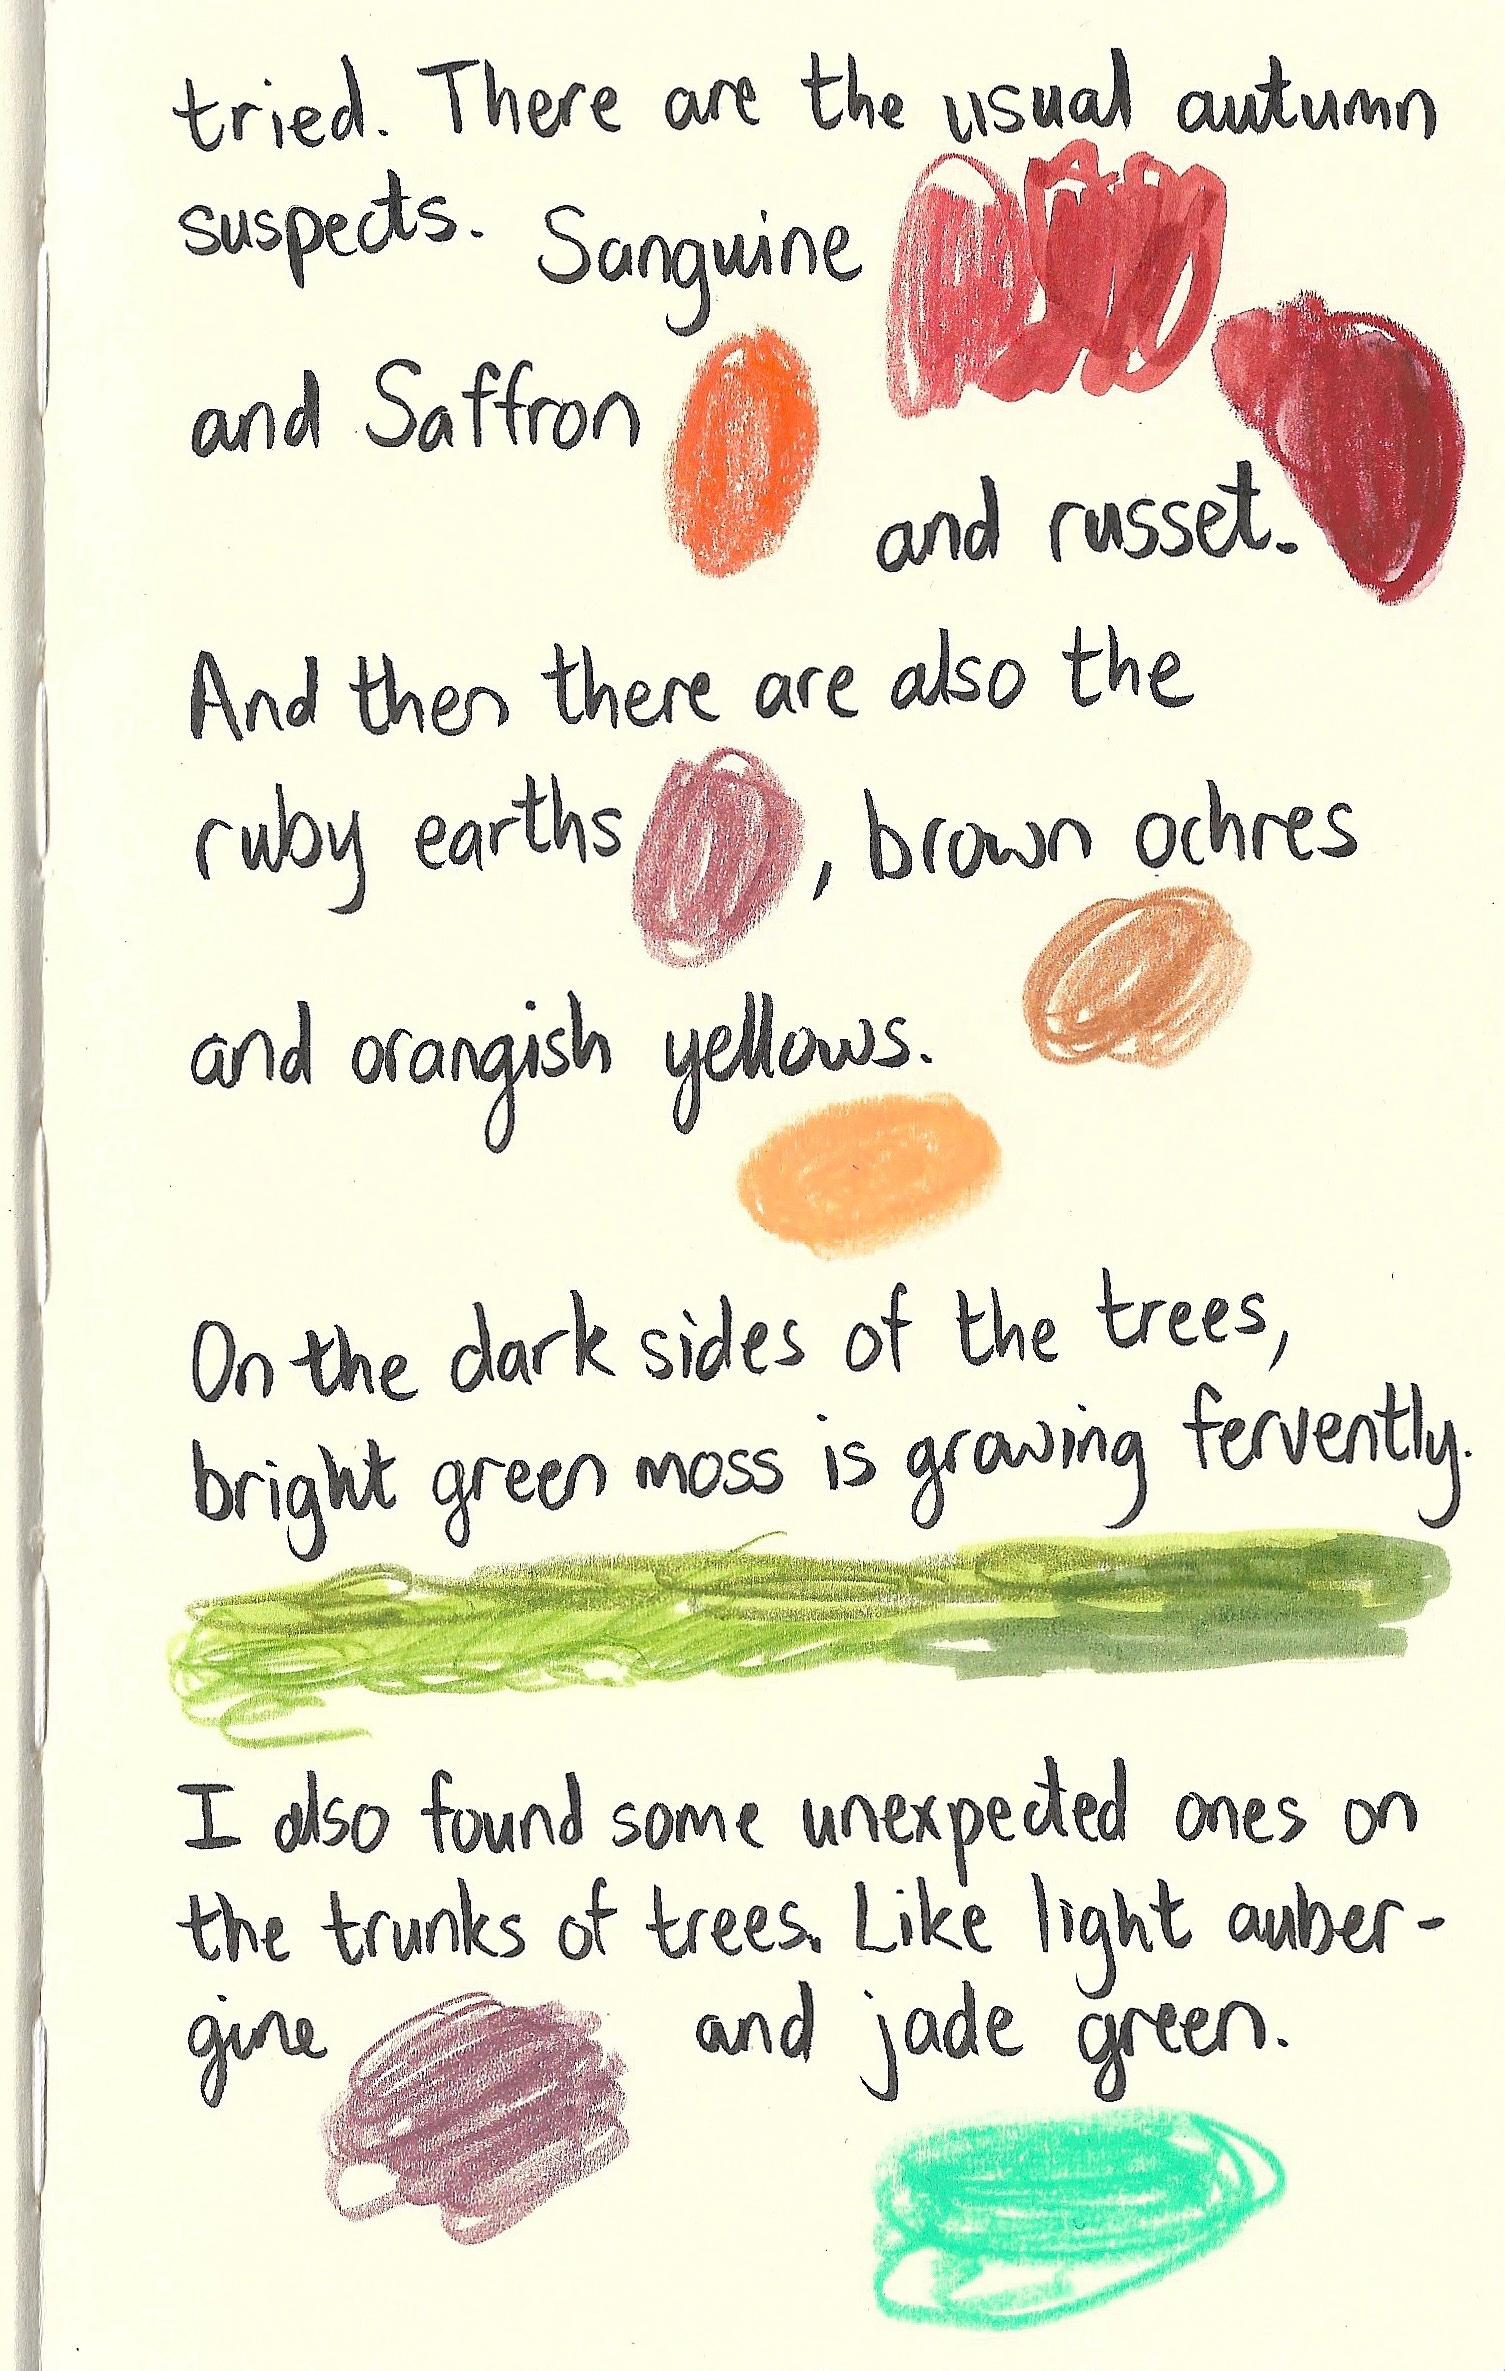 tried. There are the usual autumn
suspects. Sanguine
and Saffron
and russet.
And then there are also the
ruby earths, brown ochres
and orangish yellows.
On the dark sides of the trees,
bright green moss is growing fervently.
I also found some unexpected ones on
the trunks of trees. Like light auber-
gine and jade green.